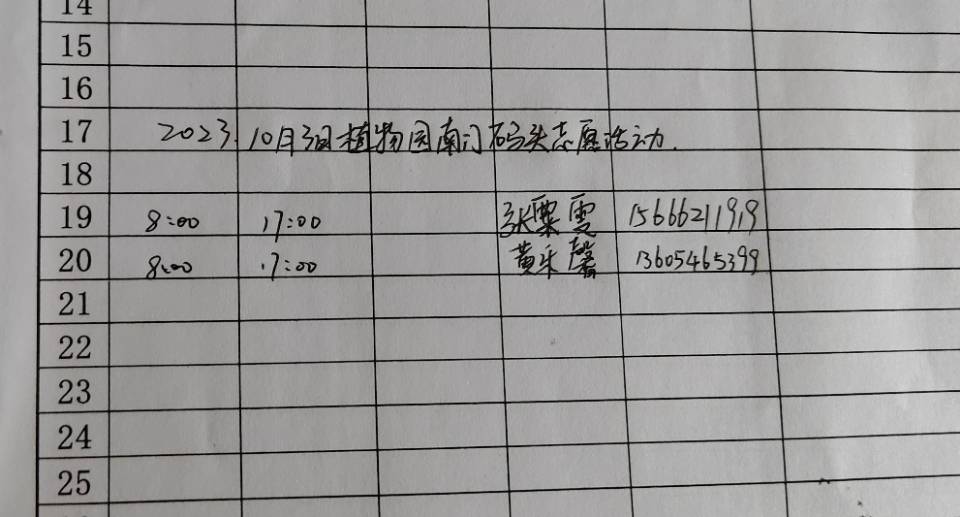 14
15
16
17 2023.10月3日植物园南门码头志愿活动.
18
19 8:00 17:00 张粟雯 15666211919
20 8:00 17:00 黄采馨 13605465399
21
22
23
24
25